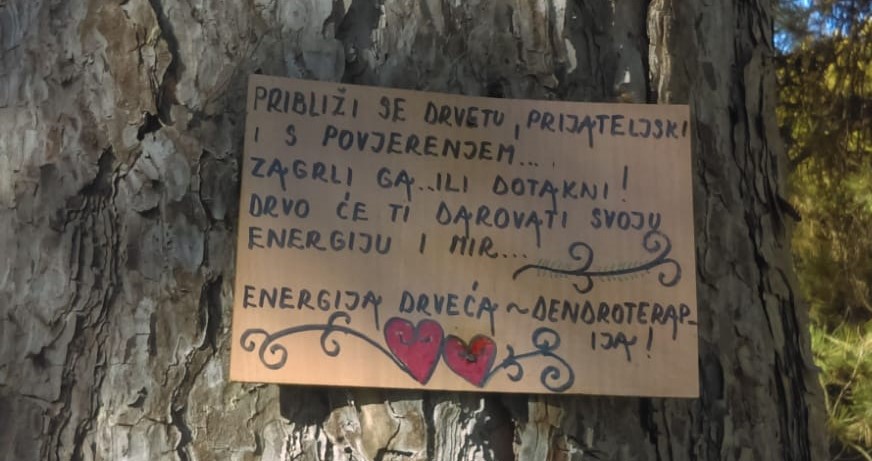 PRIBLIŽI SE DRVETU, PRIJATELJSKI
I S POVJERENJEM...
ZAGRLI GA..ILI DOTAKNI!
DRVO ĆE TI DAROVATI SVOJU
ENERGIJU I MIR...
ENERGIJA DRVEĆA ~ DENDROTERAP-
IJA!